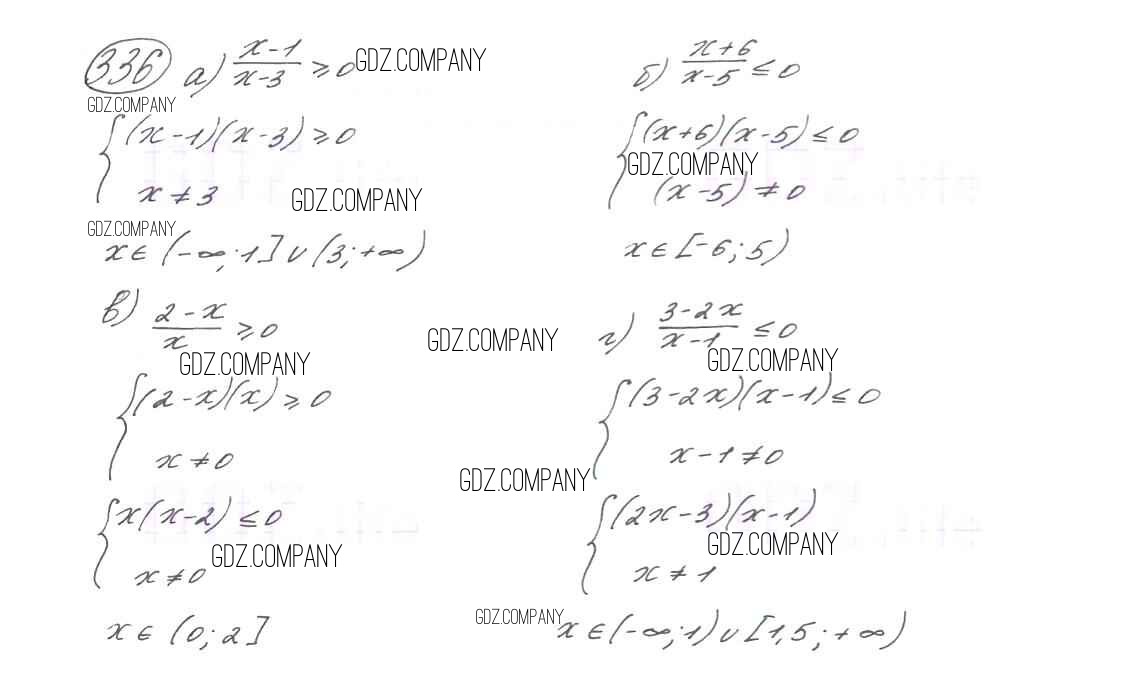 336 а) (x-1)/(x-3) ≥ 0 GDZ.COMPANY
GDZ.COMPANY
{ (x-1)(x-3) ≥ 0
x ≠ 3
GDZ.COMPANY
GDZ.COMPANY
x ∈ (-∞; 1] ∪ (3; +∞)
б) (x+6)/(x-5) ≤ 0
{ (x+6)(x-5) ≤ 0
GDZ.COMPANY
(x-5) ≠ 0
x ∈ [-6; 5)
в) (2-x)/x ≥ 0
GDZ.COMPANY
GDZ.COMPANY
{ (2-x)(x) ≥ 0
x ≠ 0
{ x(x-2) ≤ 0
GDZ.COMPANY
x ≠ 0
x ∈ (0; 2]
г) (3-2x)/(x-1) ≤ 0
GDZ.COMPANY
{ (3-2x)(x-1) ≤ 0
x-1 ≠ 0
GDZ.COMPANY
{ (2x-3)(x-1)
GDZ.COMPANY
x ≠ 1
GDZ.COMPANY
x ∈ (-∞; 1) ∪ [1,5; +∞)